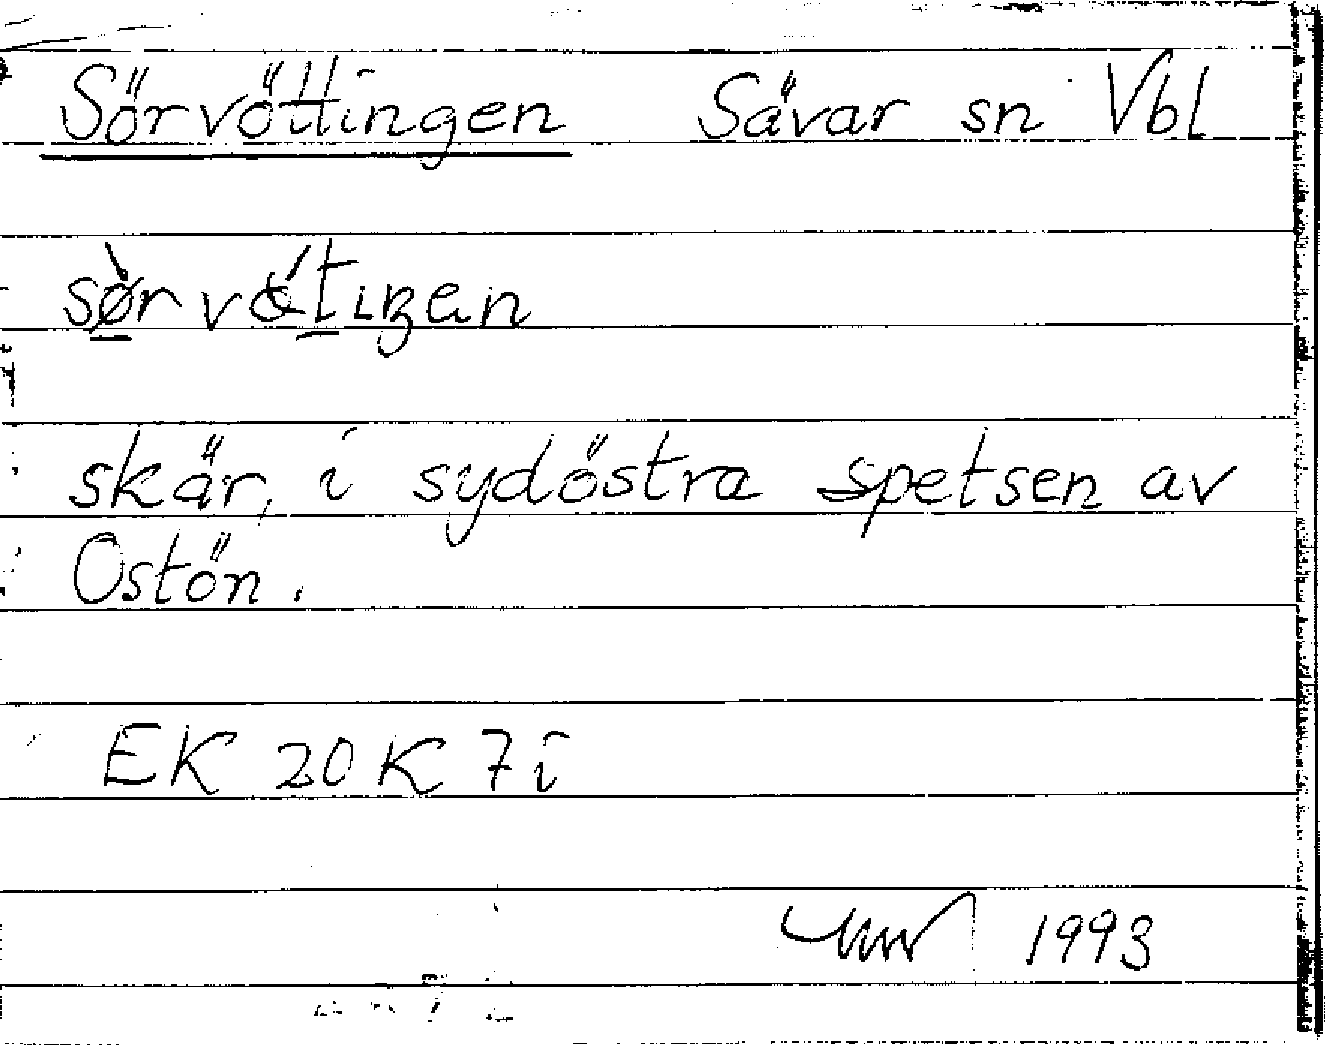 Sörvöttingen Sävar sn Vbl
skär, i sydöstra spetsen av
Ostön.
EK 20 K 7 i
1993